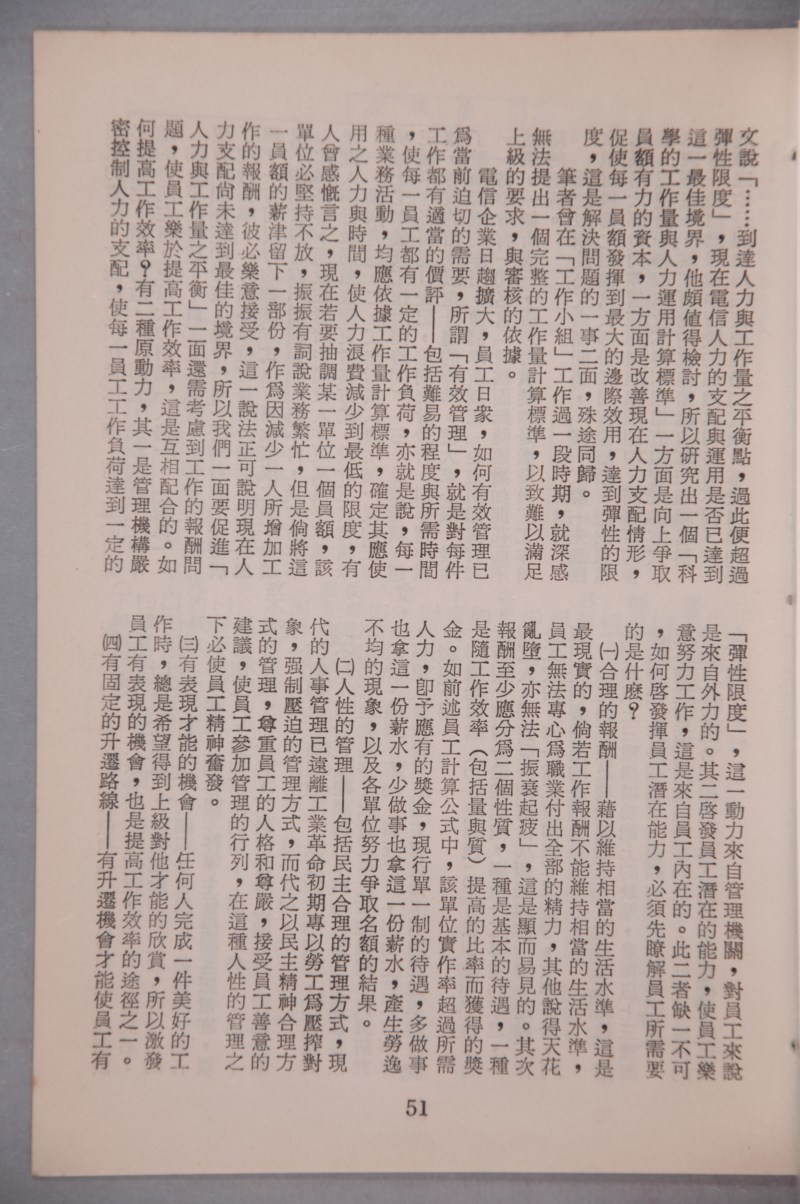 文說「……到達人力與工作量之平衡點，過此便超過
彈性限度」，現在電信人力的支配與運用是否已達到
這一最佳境界，他頗值得檢討，所以研究出一個「科
學的工作量與人力運用計算標準」一方面是向上爭取
員額有力的資本，一方面是改善現在人力支配情形，
促使每一員額發揮到最大的邊際效用，達到彈性的限
度，這是解決問題的一事二面，殊途同歸。
筆者曾在「工作小組」工作過一段時期，就深感
無法提出一個完整的工作量計算標準，以致難以滿足
上級的要求，與審核的依據。
電信企業日趨擴大，員工日衆，如何有效管理已
爲當前迫切的需要，所謂「有效管理」，就是對每件
工作都有適當的價評——包括難易的程度與所需時間
，使每一員工都有一定的工作負荷，亦就是說，每一
種業務活動，均應依據工作量計算標準，確定其應使
用之人力與時間，使人力浪費減少到最低的限度，有
人曾感慨言之，現在若要抽調某一單位一個員額，該
單位必堅持不放，振振有詞說業務繁忙，但是倘將這
一員額的薪津留下一部份，作爲因減少一人所增加工
作的報酬，彼必樂意接受，這一說法正可說明現在人
力支配尚未達到最佳的境界，所以我們一面要促進「
人力與工作量之平衡」一面還需考慮到工作的報酬問
題，使員工樂於提高工作效率，這是互相配合的。如
何提高工作效率？有二種原動力，其一是管理機構嚴
密控制人力的支配，使每一員工工作負荷達到一定的
「彈性限度」，這一動力來自管理機關，對員工來說
是來自外力的。其二啓發員工潛在的能力，使員工樂
意努力工作，這是來自員工內在的。此二者缺一不可
，如何啓發揮員工潛在能力，必須先瞭解員工所需要
的是什麼？
㈠合理的報酬——藉以維持相當的生活水準，這是
最現實的，倘若工作報酬不能維持相當的生活水準，
員工無法專心爲職業付出全部的精力，其他說得天花
亂墮，亦無法「振衰起疲」，這是顯而易見的。其次
報酬至少應分爲二個性質，一種是基本的待遇，一種
是隨工作效率（包括量與質）提高的比率而獲得的獎
金。如前述員工計算公式中，該單位實作率超過所需
人力，卽予應有的獎金，現行單一制的待遇，多做事
也拿這一份薪水，少做事也拿這一份薪水，產生勞逸
不均的現象，以及各單位努力爭取名額的結果。
㈡人性的管理——包括民主合理的管理方式，現
代的人事管理已遠離工業革命初期專以勞工爲壓搾對
象，强制壓迫的管理方式，而代之以民主精神合理方
式的管理，尊重員工的人格和尊嚴，接受員工善意的
建議，使員工參加管理的行列，在這種人性的管理之
下必使員工精神奮發。
㈢有表現才能的機會——任何人完成一件美好的工
作時，總是希望得到上級對他才能的欣賞，所以激發
員工有表現的機會，也是提高工作效率的途徑之一。
㈣有固定的升遷路線——有升遷機會才能使員工有
51